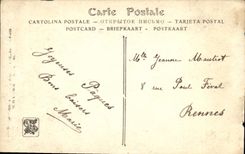 Carte Postale
CARTOLINA POSTALE — ОТКРЫТОЕ ПИСЬМО — TARJETA POSTAL
POSTCARD — BRIEFKAART — POSTKAART
Joyeuses Pâques
Bons baisers
Marie
Mlle Jeanne
8 rue Paul Féval
Rennes